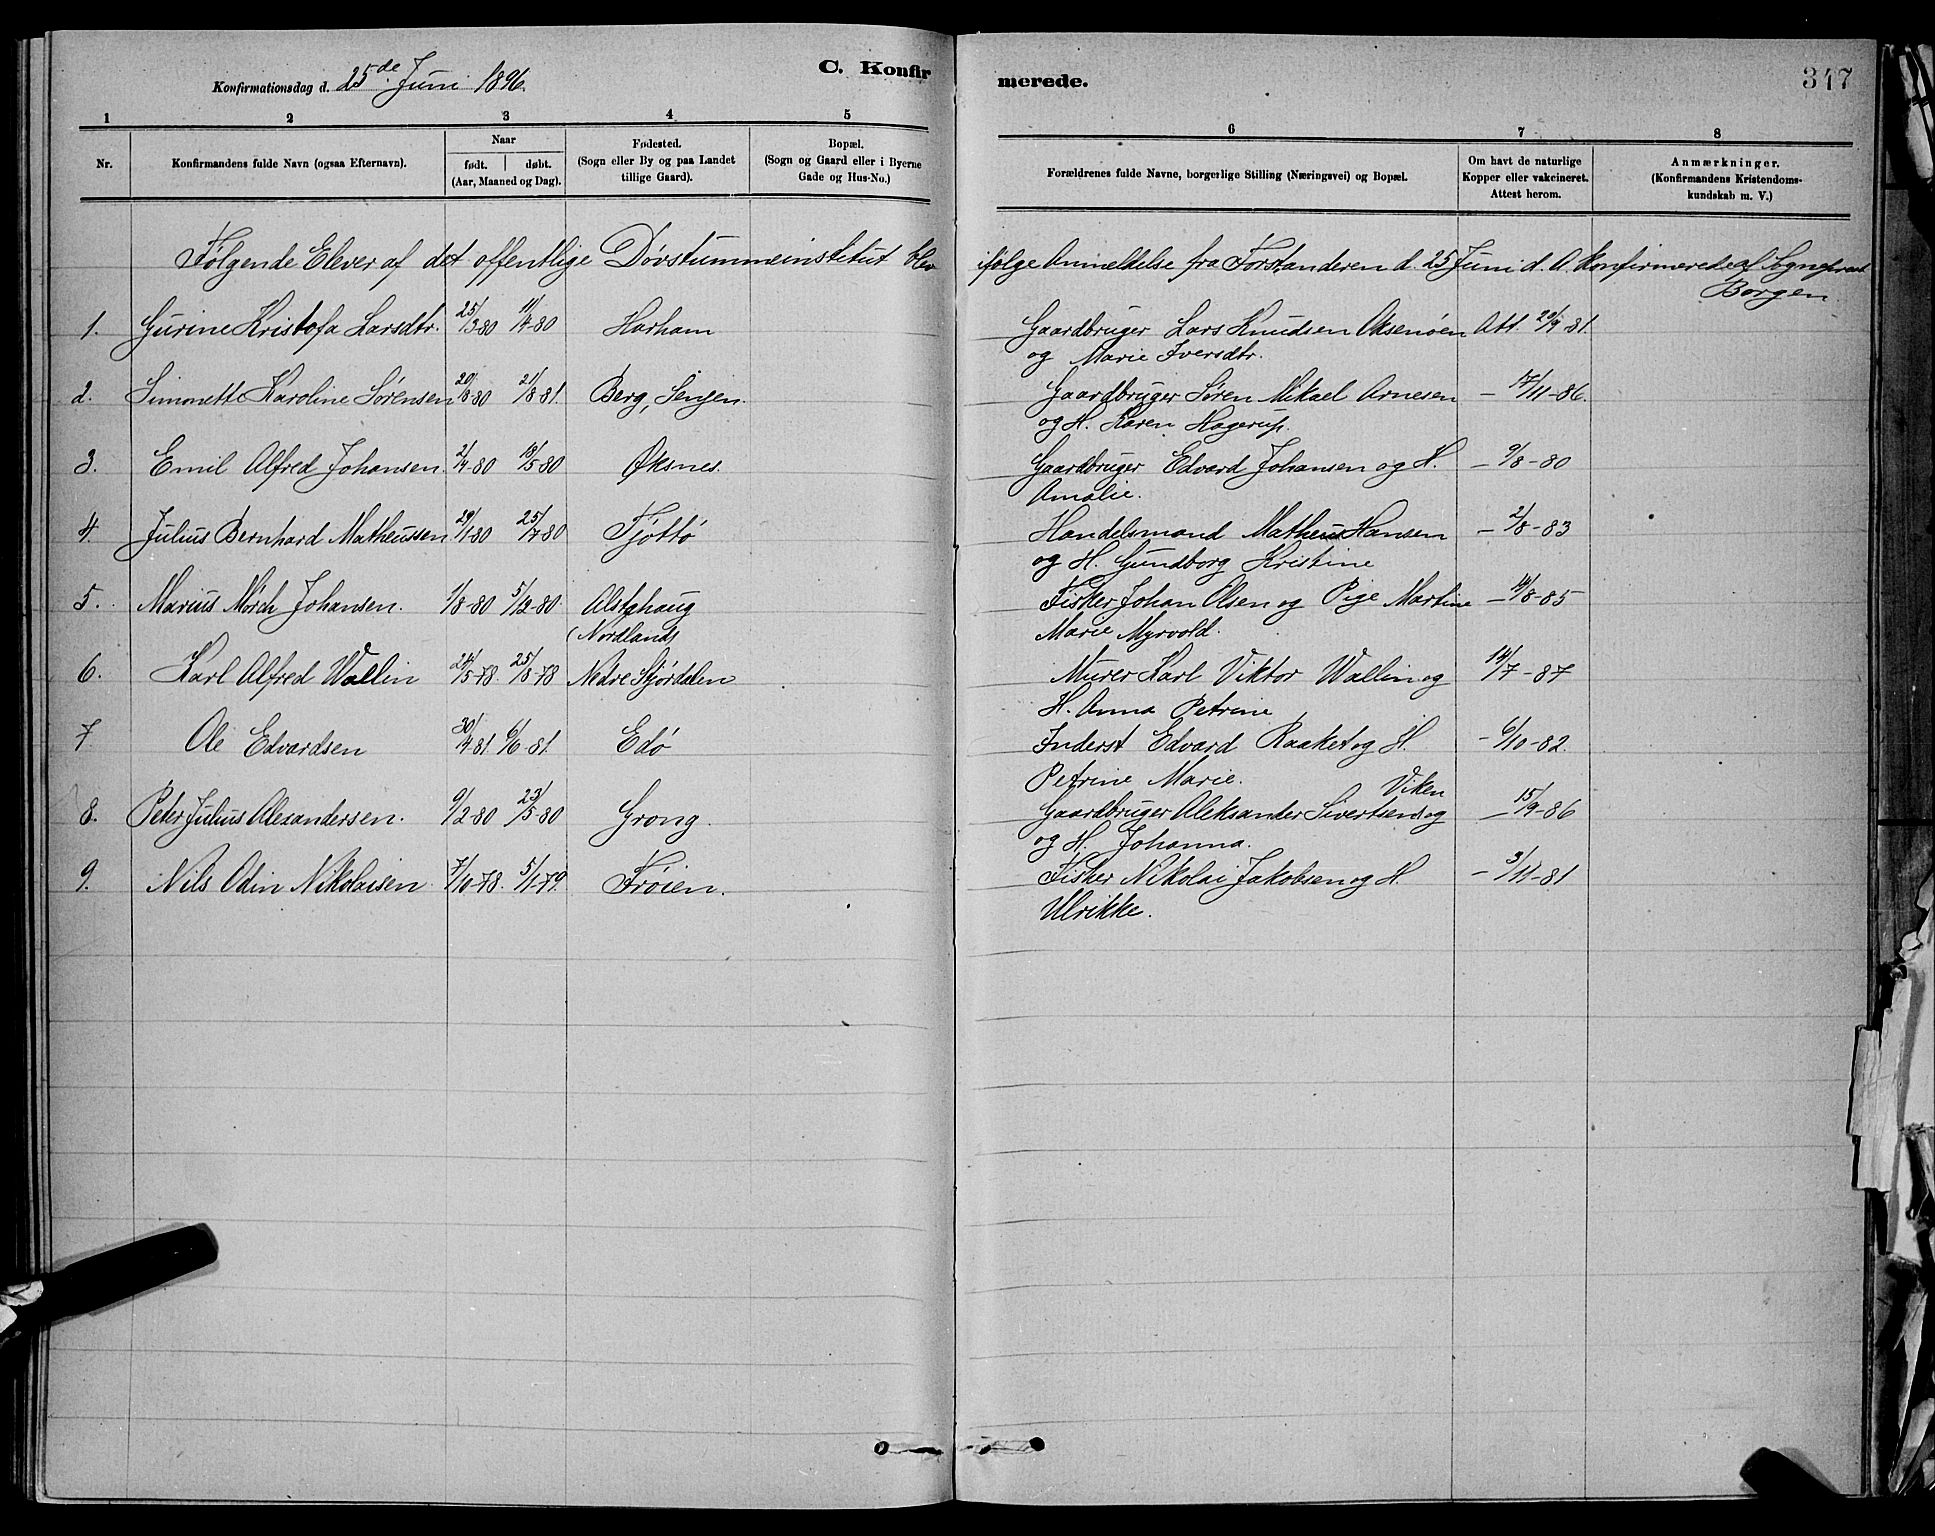 Konfirmationsdag d. 25de Juni 1896.
C. Konfirmerede.
347
1 2 3 4 5 6 7 8
Nr.
Konfirmandens fulde Navn (ogsaa Efternavn).
Naar
født. døbt.
(Aar, Maaned og Dag).
Fødested.
(Sogn eller By og paa Landet
tillige Gaard).
Bopæl.
(Sogn og Gaard eller i Byerne
Gade og Hus-No.)
Forældrenes fulde Navne, borgerlige Stilling (Næringsvei) og Bopæl.
Om havt de naturlige
Kopper eller vakcineret.
Attest herom.
Anmærkninger.
(Konfirmandens Kristendoms-
kundskab m. V.)
Følgende Elever af det offentlige Døvstummeinstitut blev ifølge Anmeldelse fra Forstanderen d. 25 Juni d. A. konfirmerede af Sognepræst
Borgen
1. Gurine Kristofa Larsdtr. 25/3-80 11/4-80 Harham Gaardbruger Lars Knudsen Oksenøen Att. 20/9-81.
og Marie Iversdtr.
2. Simonette Karoline Sørensen 20/8-80 21/8-81. Berg, Senjen. Gaardbruger Søren Mikael Arnesen - 17/11-86.
og H. Karen Hagerup.
3. Emil Alfred Johansen. 2/4-80 18/5-80 Øksnes. Gaardbruger Edvard Johansen og H. - 9/8-80
Amalie.
4. Julius Bernhard Matheussen 29/1-80 25/7-80 Tjøttø Handelsmand Matheus Hansen - 2/8-83
og H. Gundborg Kristine
5. Marius Mørch Johansen. 1/8-80 5/12-80. Alstahaug Fisker Johan Olsen og Pige Martine - 14/8-85
(Nordland) Marie Myrvold.
6. Karl Alfred Wallin 24/5-78. 25/8-78 Nedre Stjørdalen Murer Karl Viktor Wallin og 14/7-87
H. Anna Petrine
7. Ole Edvardsen 30/4-81. 6/6-81. Edø Inderst Edvard Raaket og H. - 6/10-82.
Petrine Marie.
Viken
8. Peter Julius Alexandersen. 9/2-80 23/5-80 Grong. Gaardbruger Aleksander Sivertsen og - 15/9-86
og H. Johanna.
9. Nils Odin Nikolaisen 7/10-78. 5/1-79. Frøien. Fisker Nikolai Jakobsen og H. - 3/11-81
Ulrikke.